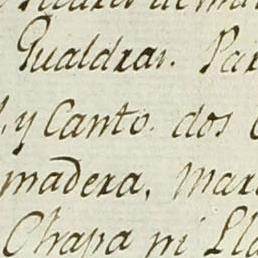 Gualdras. Par
y Canto. dos
madera, Mar
Chapa ni Lla